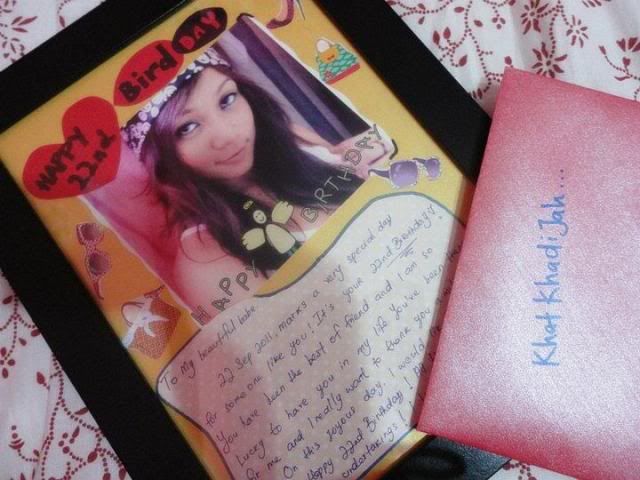 HAPPY
22nd
Bird DAY
HAPPY BIRTHDAY
To My beautiful babe
22 Sep 2011, marks a very special day
for someone like you! It's your 22nd Birthday!
You have been the best of friend and I am so
Lucky to have you in my life. You've been
for me and I really want to thank you
On this joyous day. I would
Happy 22nd Birthday!
undertakings!
Khat KhadiJah...